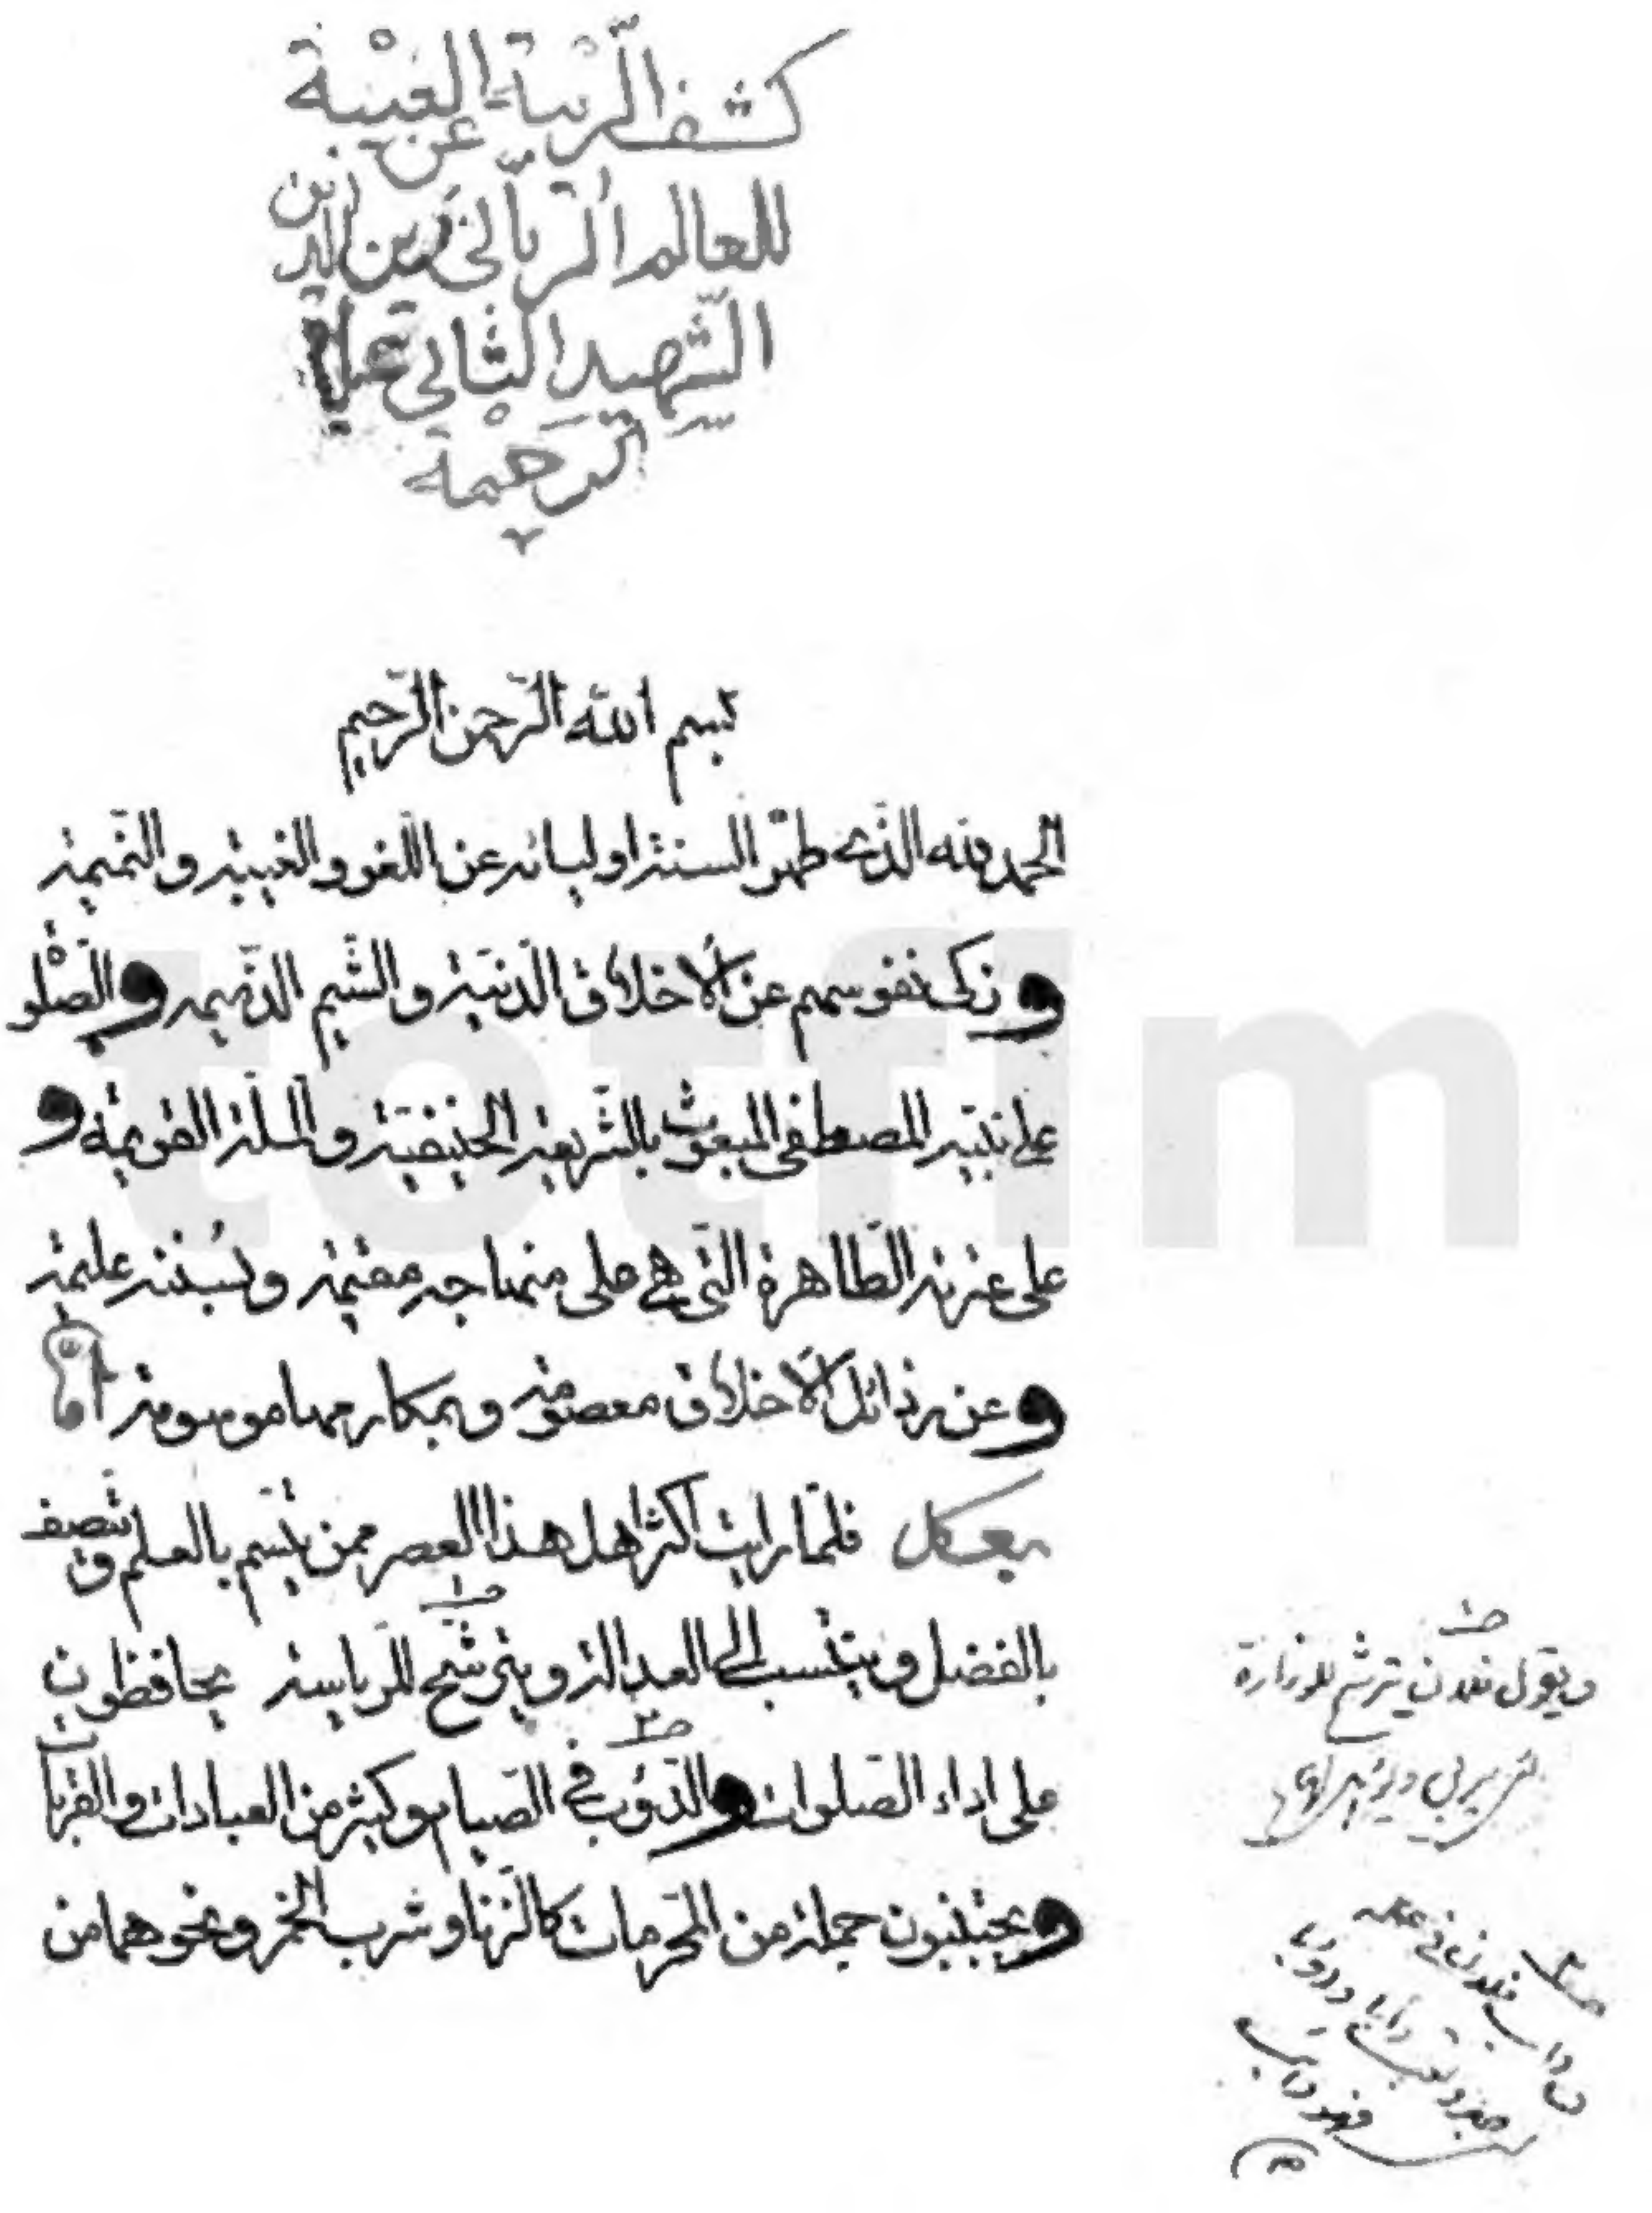 كشف الريبة عن الغيبة
للعالم الرباني زين الدين
الشهيد الثاني عليه
الرحمة
بسم الله الرحمن الرحيم
الحمد لله الذي طهر السنة اوليائه عن اللغو والغيبة والنميمة
و زكى نفوسهم عن الاخلاق الدنية و الشيم الذميمه و الصلوة
على نبيه المصطفى المبعوث بالشريعة الحنيفية و الملة القويمة و
على عترته الطاهرة التي هي على منهاجه مقيمة و بسنته عليمة
و عن رذائل الاخلاق معصومة و بمكارمها موسومة اما
بعد فلما رايت اكثر اهل هذا العصر ممن يتسم بالعلم و يتصف
بالفضل و ينتسب الى العدالة و يترشح للرياسة يحافظون
على اداء الصلوات والدؤب في الصيام و كثير من العبادات والقربات
و يجتنبون جملة من المحرمات كالزنا و شرب الخمر و نحوهما من
ويقول فلان يترشح للوزارة
اى يربى ويؤهل لها
ص داب فلان في عمله
جد وتعب دابا ودؤبا
فهو دائب
totfim